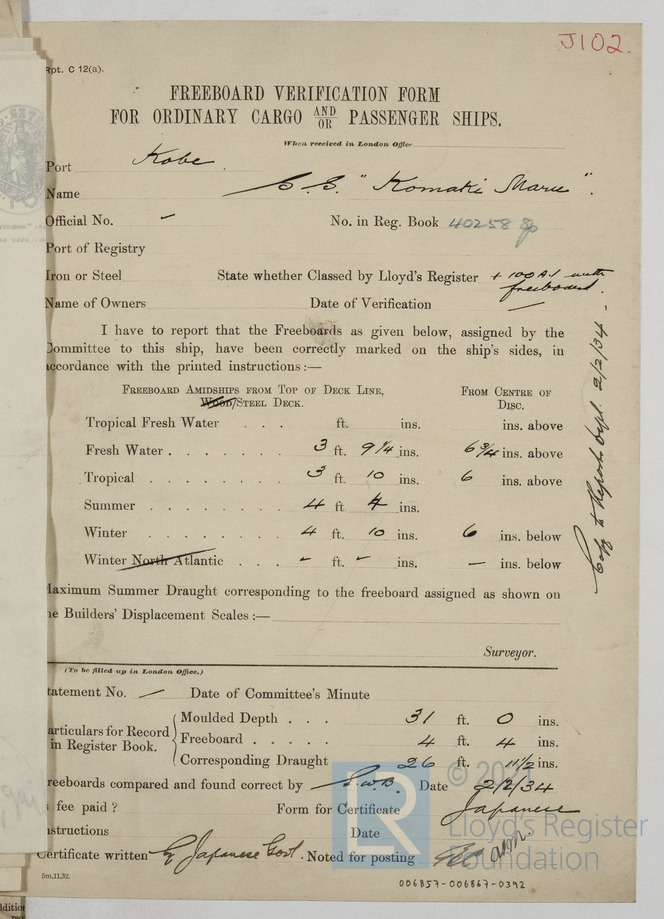 J102.
Rpt. C 12(a).
FREEBOARD VERIFICATION FORM
FOR ORDINARY CARGO AND/OR PASSENGER SHIPS.
When received in London Office
Port Kobe
Name S.S. "Komaki Maru".
Official No. - No. in Reg. Book 40258
Port of Registry
Iron or Steel State whether Classed by Lloyd's Register + 100 A.1 with freeboard.
Name of Owners Date of Verification —
I have to report that the Freeboards as given below, assigned by the
Committee to this ship, have been correctly marked on the ship's sides, in
accordance with the printed instructions :—
FREEBOARD AMIDSHIPS FROM TOP OF DECK LINE, FROM CENTRE OF
WOOD/STEEL DECK. DISC.
Tropical Fresh Water . . . ft. ins. ins. above
Fresh Water . . . . . . . 3 ft. 9 1/4 ins. 6 3/4 ins. above
Tropical . . . . . . . 3 ft. 10 ins. 6 ins. above
Summer . . . . . . . 4 ft. 4 ins.
Winter . . . . . . . 4 ft. 10 ins. 6 ins. below
Winter North Atlantic . . . - ft. - ins. — ins. below
Maximum Summer Draught corresponding to the freeboard assigned as shown on
he Builders' Displacement Scales :—
Surveyor.
Copy to Reports Dept. 2/2/34.
(To be filled up in London Office.)
tatement No. — Date of Committee's Minute
articulars for Record in Register Book.
Moulded Depth . . . 31 ft. 0 ins.
Freeboard . . . . . 4 ft. 4 ins.
Corresponding Draught 26 ft. 11 1/2 ins.
reeboards compared and found correct by S.W.B. Date 2/2/34
s fee paid ? Form for Certificate Japanese
nstructions Date
Certificate written By Japanese Govt. Noted for posting
5m,11,32.
006857-006867-0392
© 2021
LR
Lloyd's Register
Foundation